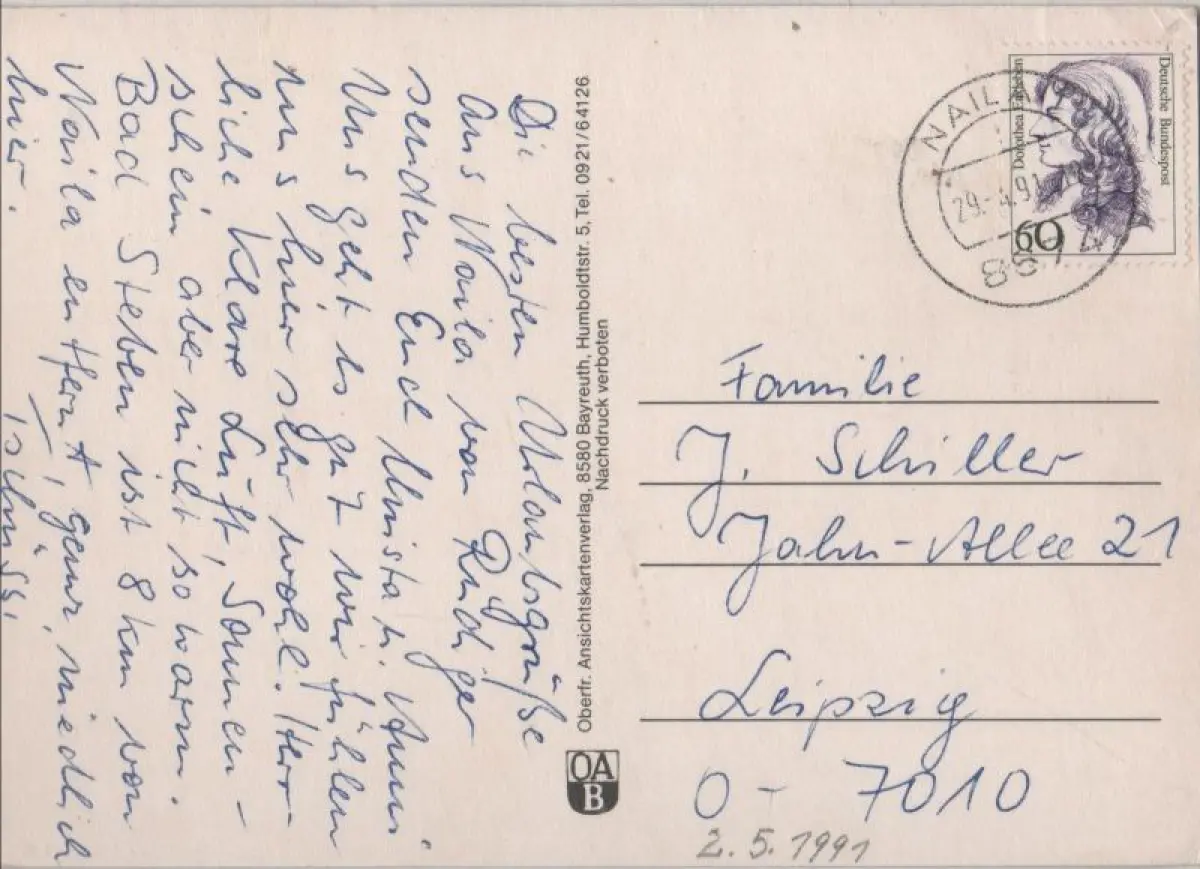 Die besten Urlaubsgrüße
aus Naila von Rüdiger
senden Euch Christa u. Anni
Uns geht es gut wir fühlen
uns hier sehr wohl. Herr-
liche klare Luft, Sonnen-
schein aber nicht so warm.
Bad Steben ist 8 km von
Naila entfernt, ganz niedlich
hier.
Tschüß!
Oberfr. Ansichtskartenverlag, 8580 Bayreuth, Humboldtstr. 5, Tel. 0921/64126
Nachdruck verboten
OA
B
Deutsche Bundespost
Dorothea Erxleben
60
NAILA
29.-4.91
Familie
J. Schiller
Jahn-Allee 21
Leipzig
O - 7010
2.5.1991